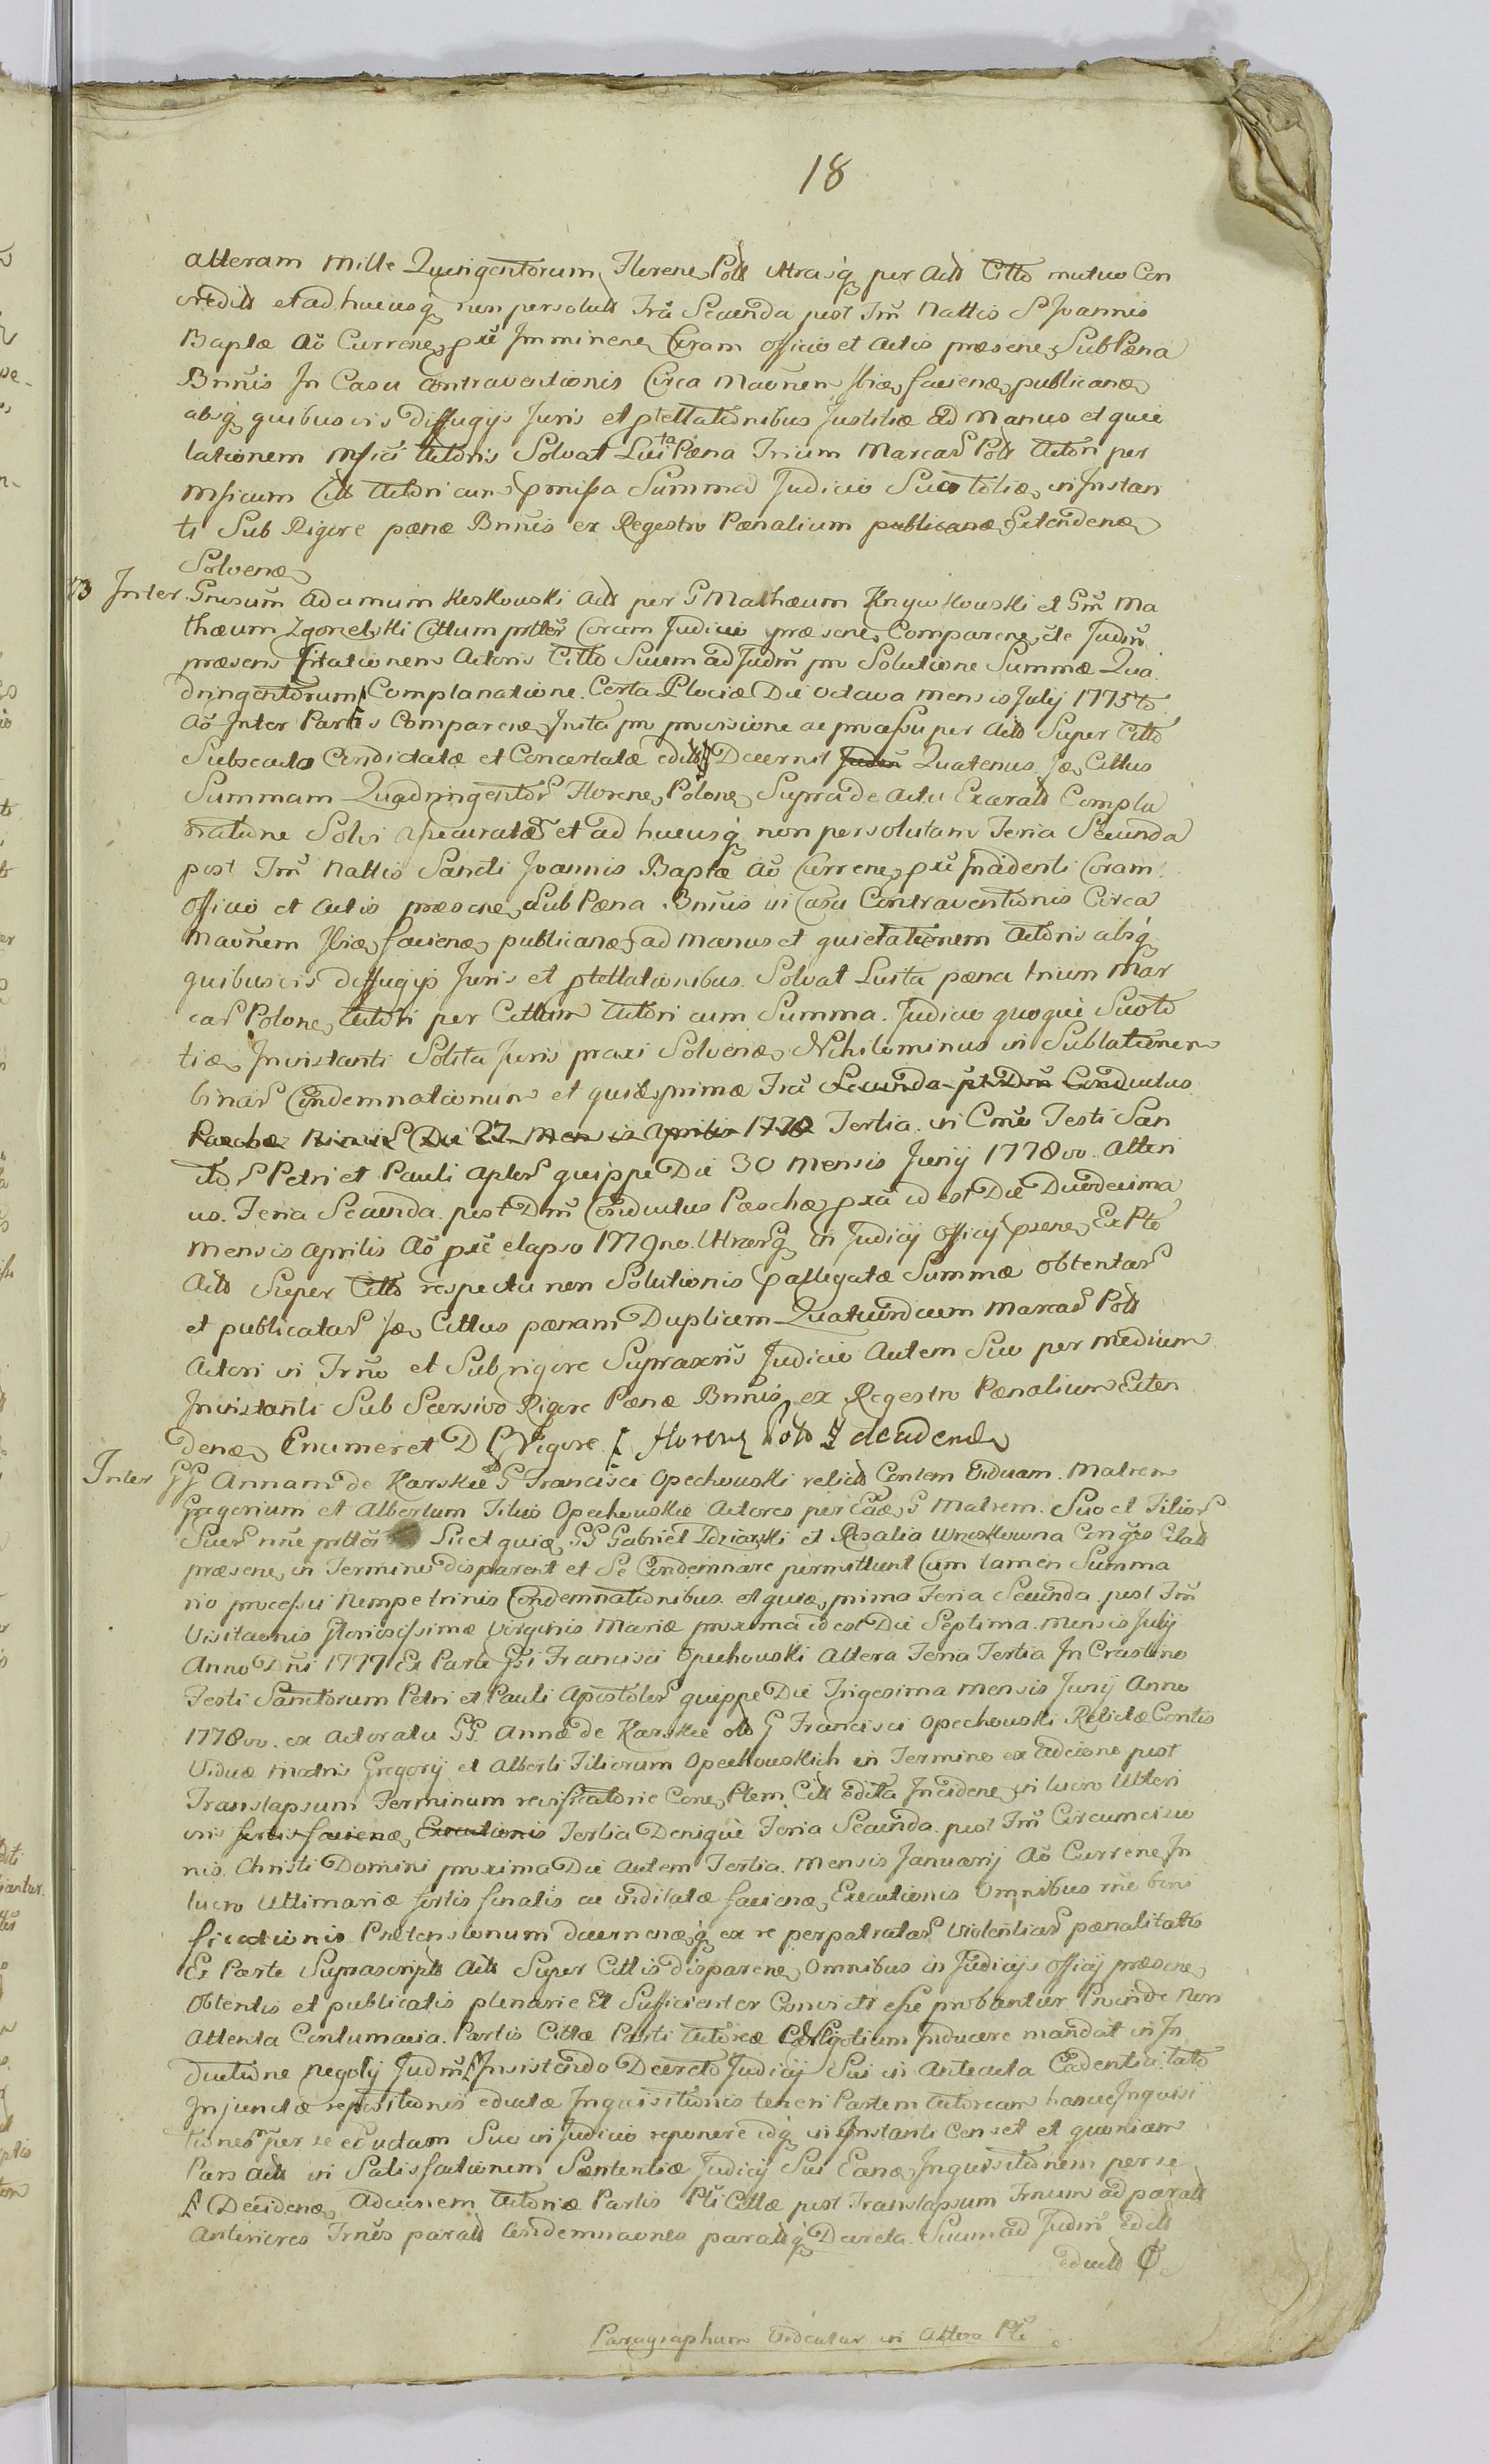 18
alteram Mille Quingentorum Floren Poll utrasq per Acts Citto mutuo Con
credits et ad hucusq non persoluts Fria Secunda post Fm Nattis S Joannis
Baptæ Aō Curren, pxē Imminen Coram officio et Actis præsen, Sub Pæna
Bnnis In Casu Contraventionis Circa Maōnem Ibiæ, faciendæ, publicanæ,
absq quibusvis Diffugijs Juris et ptellationibus Justitiæ Ad Manus et quie
tationem Actoris Solvat Luita Pæna Trium Marcar Pols Actori per
Actori cum pmissa Summa Judicio Suo toties, in Instan
ti Sub Rigore pænæ Bnnis ex Regestro Pænalium publicanæ, Extendenæ,
Solvenæ,
Inter Gnrsum Adamum Keskowski Acts per G Mathæum et Gm Ma
thæum Zgorzelski Cittum prtter Coram Judicio præsen, Comparen, de Judm
præsens Citationem Actoris Citto Suum ad Judm pro Solutione Summæ Qua
dringentorum Complanatione Certa Plociæ Die octava mensis Julij 1775to
Aō Inter Partes Comparen, Insta pro provisione ac processu per Acts Super Citto
Subsecuta Condictatæ et Concertatæ edits Decernit Judm Quatenus Jæ, Cittus
Summam Quadringentor Floren, Polone, Supra de Actu Exarats Compla
natione Solvi assecuratæ et ad hucusq non persolutam Feria Secunda
post Fm Nattis Sancti Joannis Baptæ Aō Curren, pxē Incidenti Coram
officio et Actis præsen, Sub Pæna Bnnis in Casu Contraventionis Circa
Maōnem Ibiæ, faciendæ, publicanæ, ad Manus et quietationem Actoris absq
quibusvis diffugijs Juris et ptellationibus Solvat Luita pæna trium Mar
car Polone, Actori per Cittum Actori cum Summa Judicio quoque Suo to
ties, In instanti Solita Juris praxi Solvenæ, Nihilominus in Sublationem
binar Condemnationum et quidē, primæ Fria Secunda pt Dm Conductus
Paschæ Die 27 Mensis Aprilis 1778 Tertia in Cmo Festi San
ctor Petri et Pauli Aplor quippe Die 30 Mensis Junij 1778vo Alteri
us Feria Secunda post Dm Conductus Paschæ, pxā id est Die Duodecima
Mensis Aprilis Aō pxē elapso 1779no Utrarq in Judicij officij psen, Ex Pte
Acts Super Citto respectu non Solutionis pallegatæ Summæ obtentar
et publicatar Jæ, Cittus pænam Duplicem Quatuordecim Marcar Pols
Actori in Frmo et Sub rigore Supraxris Judicio Autem Suo per medium
In instanti Sub Scersivo Rigore Pænæ Bnnis ex Regestro Pænalium Exten
denæ, Enumeret D C Vigore Floreny Pols
Inter GG Annam de Karskie G Francisci Opechowski relicts Contem Viduam Matrem
Gregorium et Albertum Filios Opechowskie Actores per Eadē, G Matrem Suo et Filior
Suor nne prttos Licet quiæ, GG Gabriel Idziaxski et Rosalia Wroskowna Conges Citats
præsen, in Termino disparent et Se Condemnare permittunt Cum tamen Summa
rio processu Nempe trinis Condemnationibus et quiæ, prima Feria Secunda post Fm
Visitaōnis Gloriosissimæ Virginis Mariæ proxima id est Die Septima Mensis Julij
Anno Dni 1777 Ex Parte Gsi Francisci Opechowski Altera Feria Tertia In Crastino
Festi Sanctorum Petri et Pauli Apostolor quippe Die Trigesima Mensis Junij Anno
1778vo ex Actoratu GG Annæ de Karskie olo G Francisci Opechowski Relictæ Contis
Viduæ Matris Gregorij et Alberti Filiorum Opechowskich in Termino ex Adcione post
Translapsum Terminum Cone, Ptem Citt Edita Inciden, in lucro Ulteri
oris sortis faciendæ, Executionis Tertia Denique Feria Secunda post Fm Circumcisio
nis Christi Domini proxima Die autem Tertia Mensis Januarij Aō Curren, In
lucro Ultimariæ sortis finalis ac indilatæ faciendæ, Executionis Omnibus
ficationis Prætensionum decernenæ,q ex re perpetratar violentiar pænalitatis
Ex Parte Suprascripts Acts Super Cittis disparen, Omnibus in Judicijs officij præsen,
Obtentis et publicatis plenarie Et Sufficienter Convicti esse probantur Proinde Non
Attenta Contumacia Partis Cittæ Parti Actoreæ Negotium Inducere mandat in In
ductione Negotij Judm Insistendo Decreto Judicij Sui in Antecuta Cadentia lato
Injunctæ repositionis eductæ Inquisitionis teneri Partem Actoream hancce Inquisi
tionem per se eductam Suo in Judicio reponere idq in Instanti Censet et quoniam
Pars Acts in Satisfactionem Sententiæ Judicij Sui Eanæ, Inquisitionem per se
Deciden, Adcionem Actoriæ Partis Pti Cittæ post Translapsum Frnum ad parats
Anteriores Frnos parats Condemnaōnes paratsq Decreta Suum ad Judm edits
educts
Paragraphum Videatur in Altera Pte